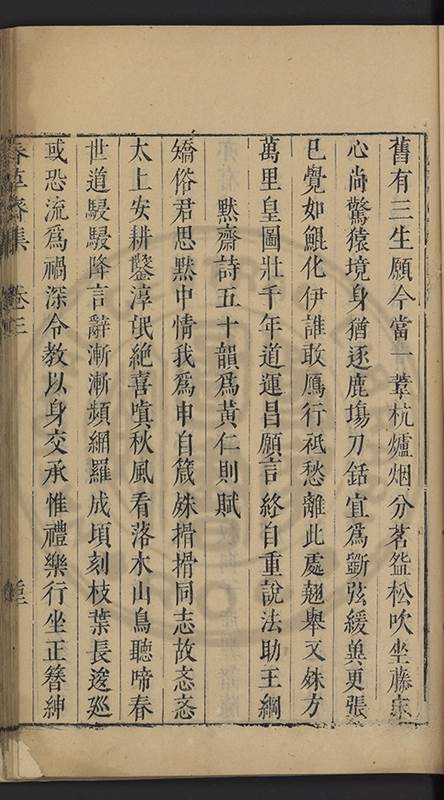 舊有三生願今當一葦杭爐烟分茗盌松吹坐藤床
心尚驚猿境身猶逐鹿塲刀銛宜爲斷弦緩奠更張
已覺如鯤化伊誰敢鴈行祗愁離此處翹舉又殊方
萬里皇圖壯千年道運昌願言終自重說法助王綱
默齋詩五十韻爲黃仁則賦
矯俗君思默中情我爲申自箴殊搰搰同志故忞忞
太上安耕鑿淳氓絶喜嗔秋風看落木山鳥聽啼春
世道駸駸降言辭漸漸頻網羅成頃刻枝葉長逡廵
或恐流爲禍深令教以身交承惟禮樂行坐正簪紳
春草齋集 卷三